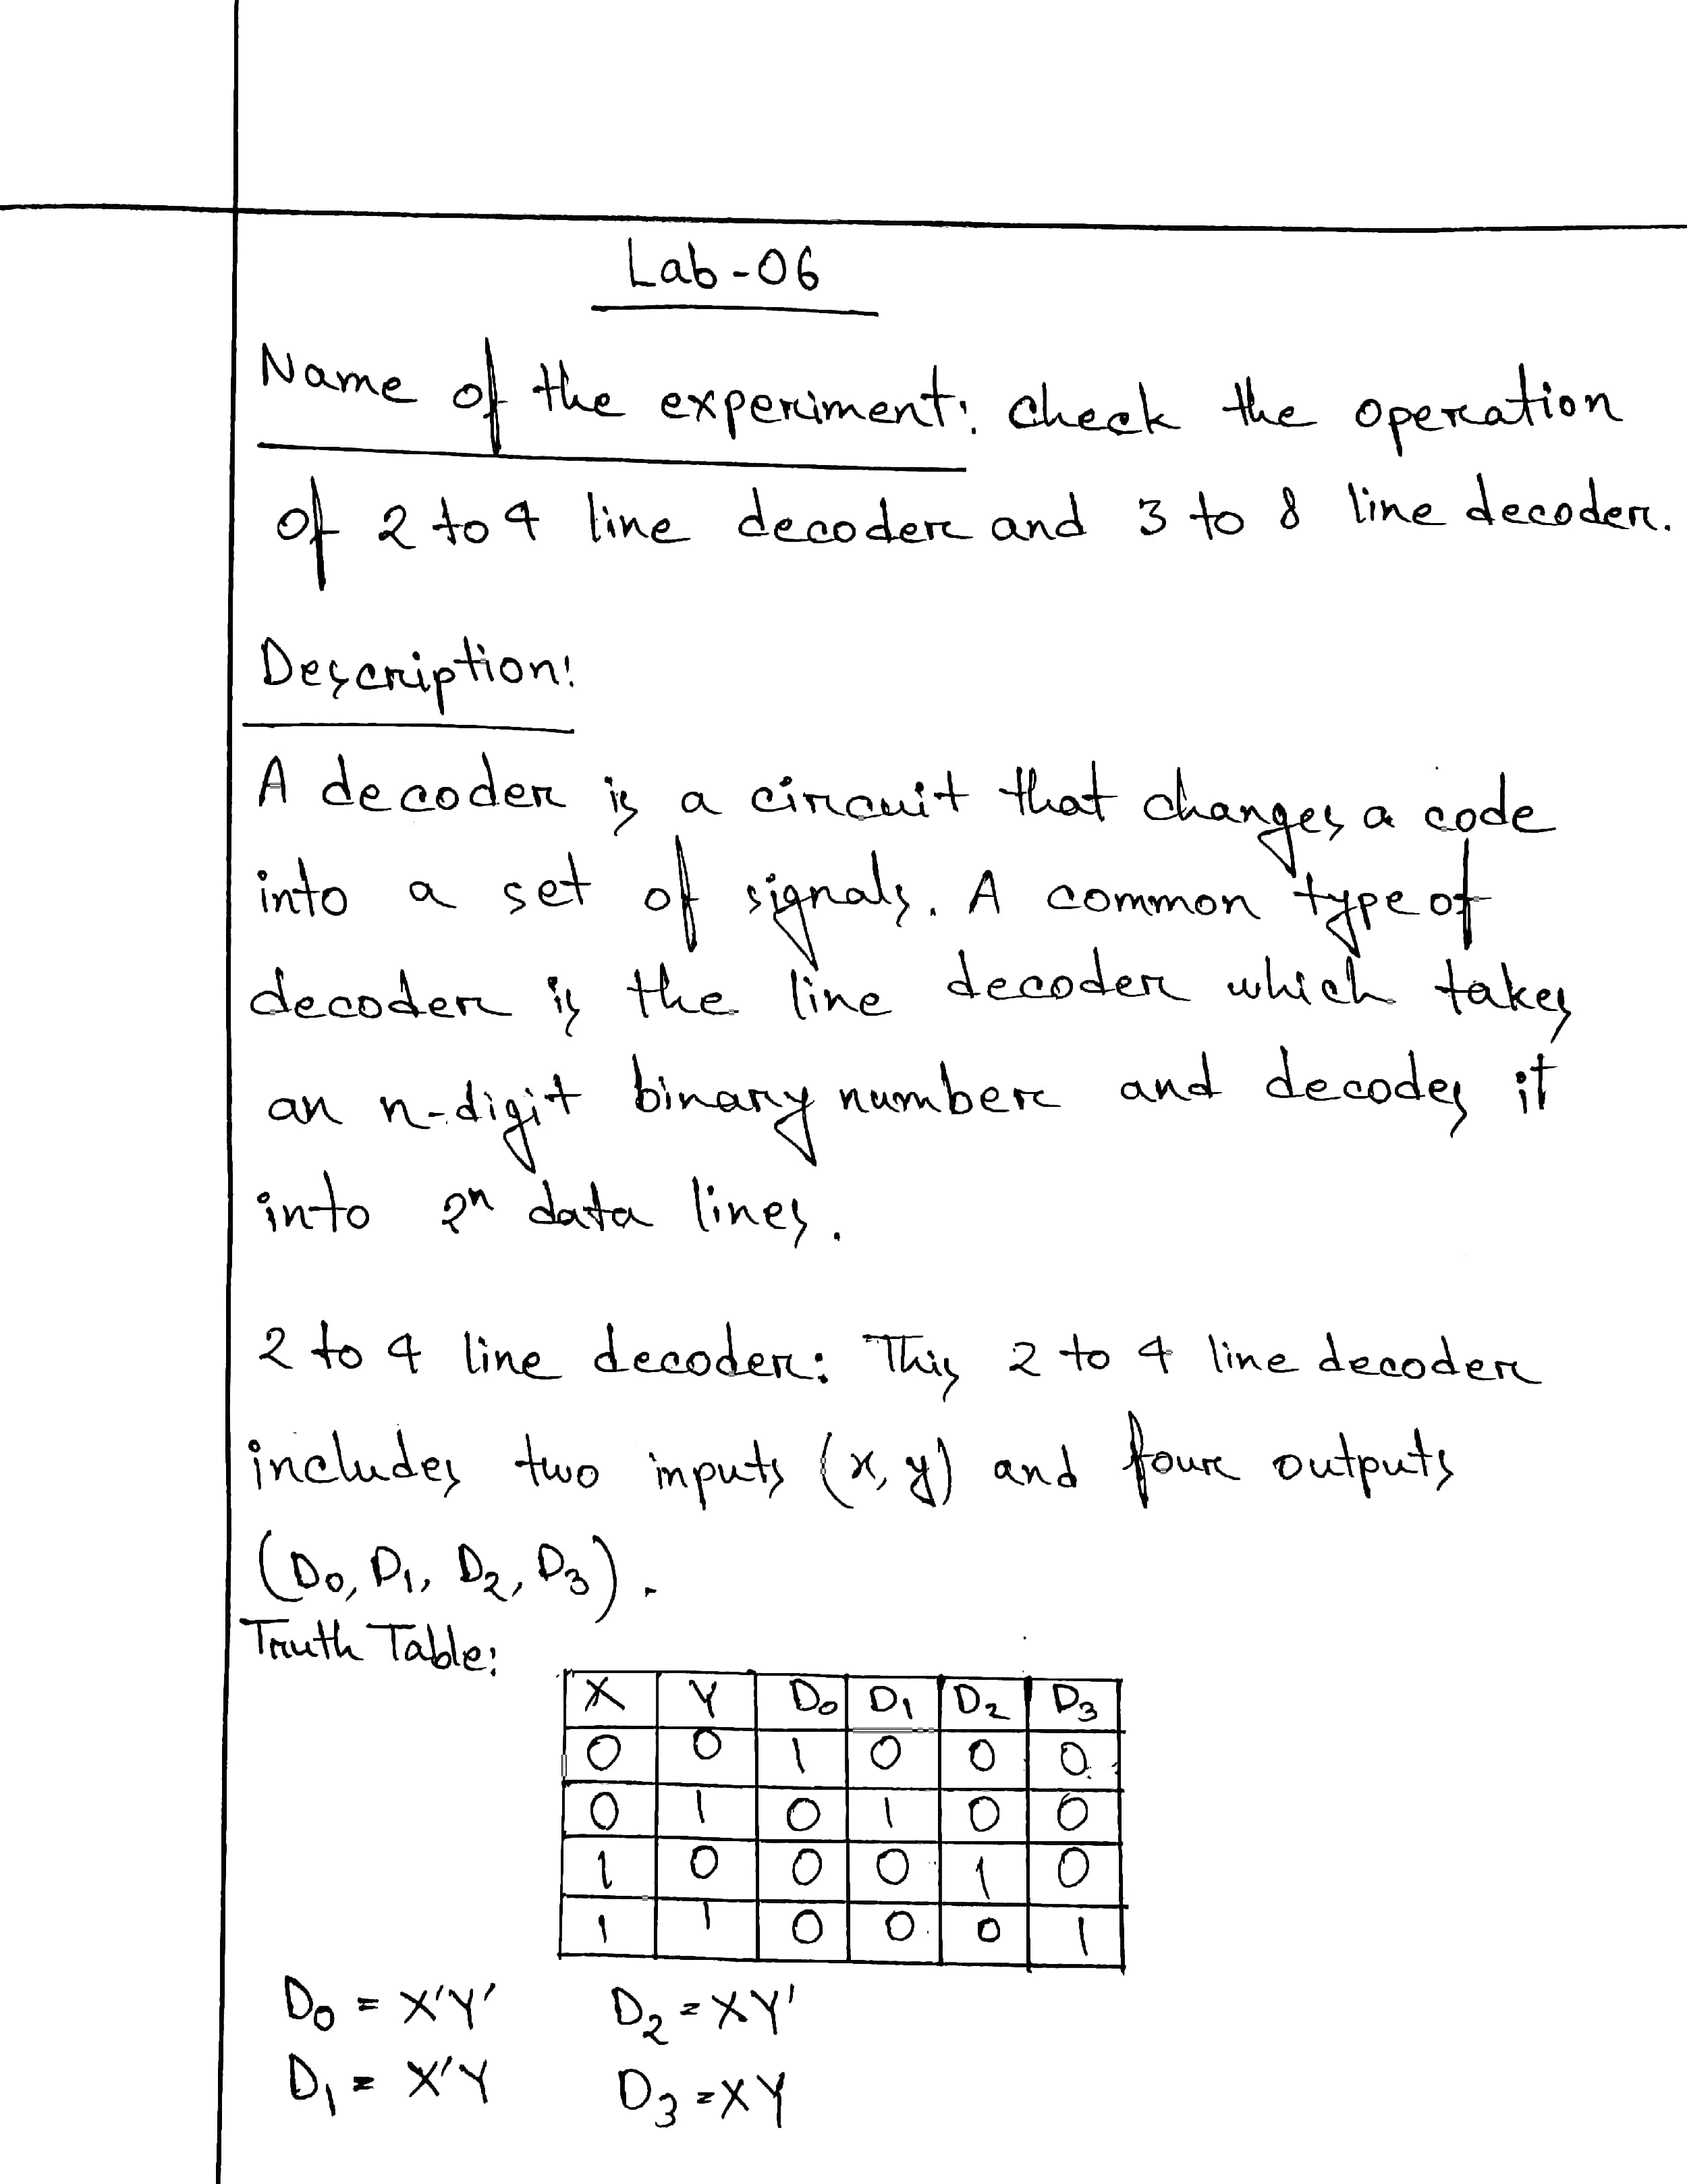 Lab-06
Name of the experiment: Check the operation
of 2 to 4 line decoder and 3 to 8 line decoder.
Description:
A decoder is a circuit that changes a code
into a set of signals. A common type of
decoder is the line decoder which takes
an n-digit binary number and decodes it
into 2ⁿ data lines.
2 to 4 line decoder: This 2 to 4 line decoder
includes two inputs (x, y) and four outputs
(D₀, D₁, D₂, D₃).
Truth Table:
X Y D₀ D₁ D₂ D₃
0 0 1 0 0 0
0 1 0 1 0 0
1 0 0 0 1 0
1 1 0 0 0 1
D₀ = X'Y' D₂ = XY'
D₁ = X'Y D₃ = XY